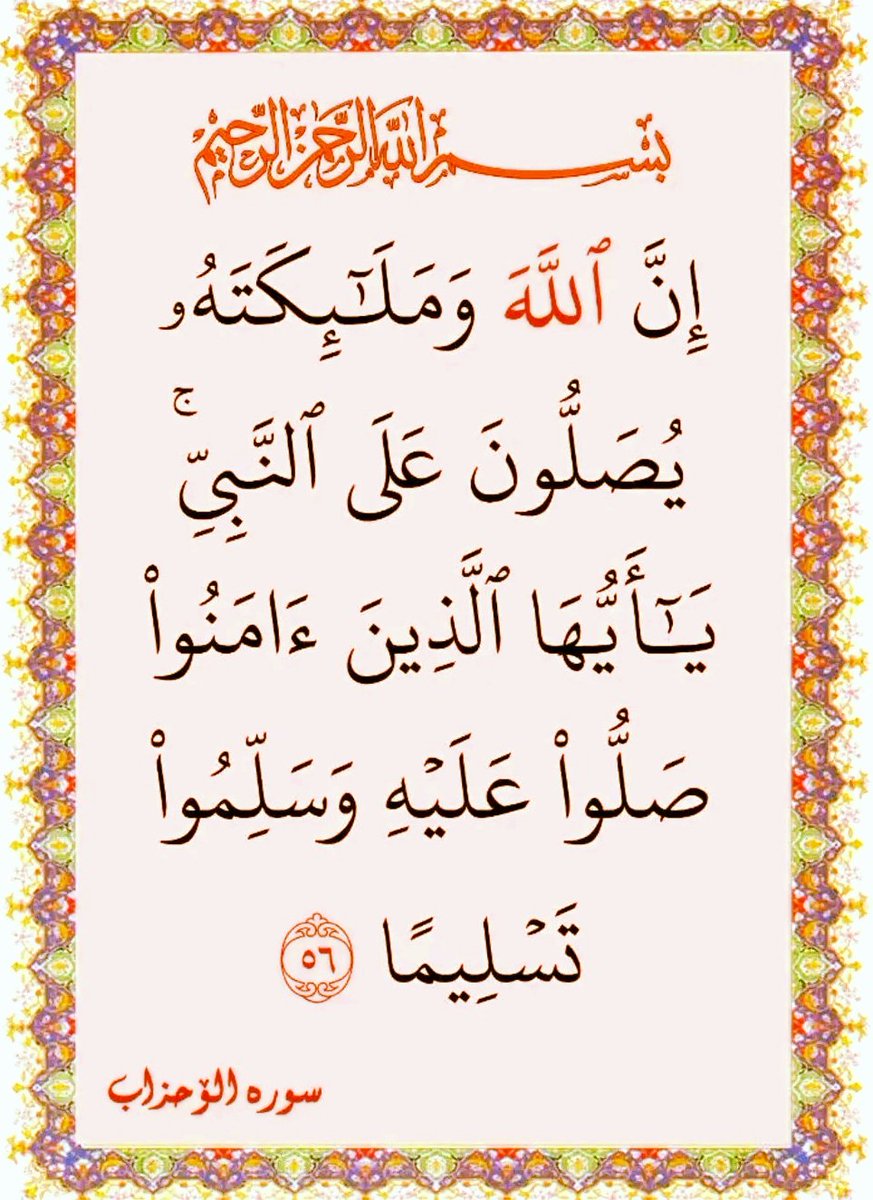 بسم الله الرحمن الرحيم
إِنَّ ٱللَّهَ وَمَلَـٰٓئِكَتَهُۥ
يُصَلُّونَ عَلَى ٱلنَّبِىِّ ۚ
يَـٰٓأَيُّهَا ٱلَّذِينَ ءَامَنُوا۟
صَلُّوا۟ عَلَيْهِ وَسَلِّمُوا۟
تَسْلِيمًا ٥٦
سوره الأحزاب